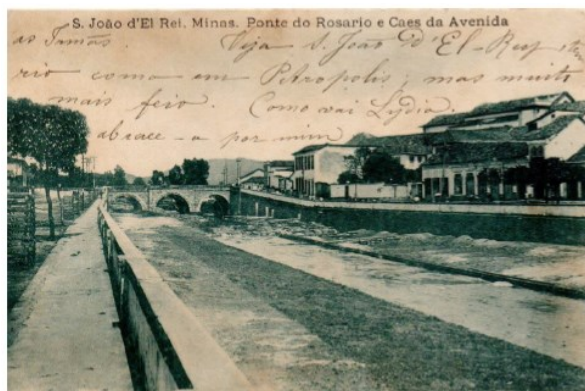 S. João d'El Rei. Minas. Ponte do Rosario e Caes da Avenida
as Veja S. João d'El-Rey
rio como em Petropolis; mas muito
mais feio. Como vai Lydia.
abrace-a por mim